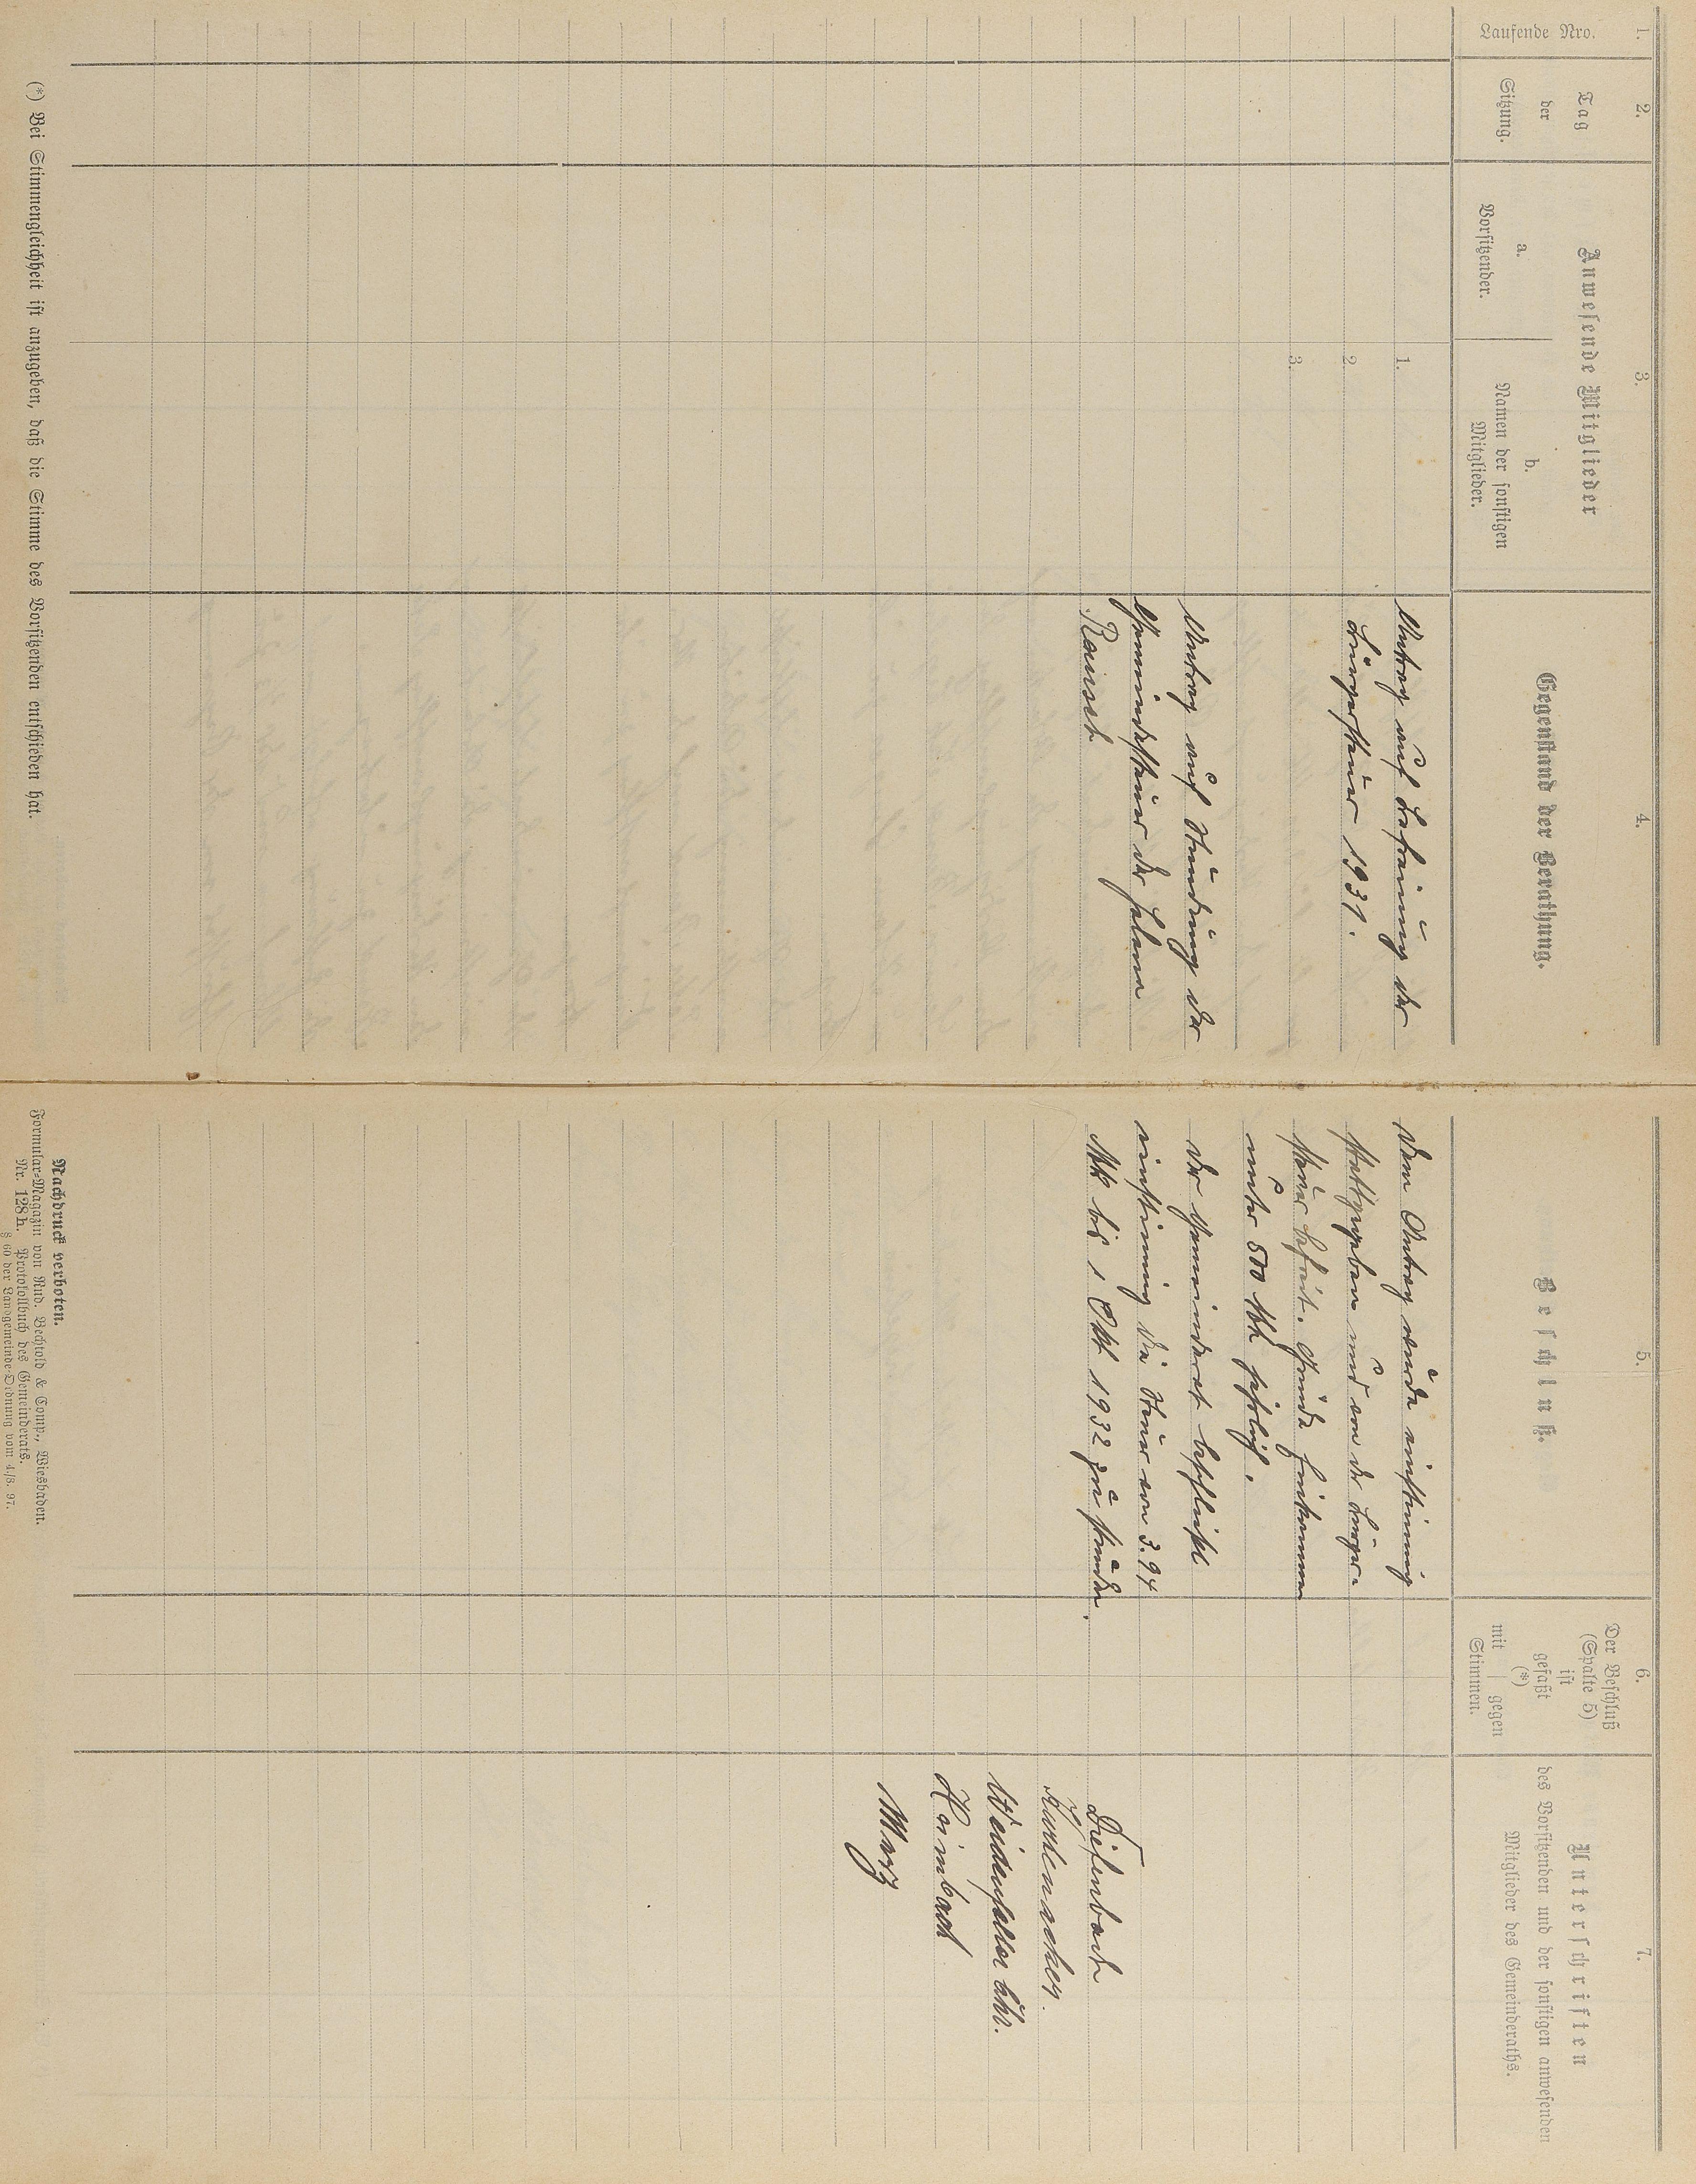 1.
Laufende Nro.
2.
Tag
der
Sitzung.
3.
Anwesende Mitglieder
a.
Vorsitzender.
b.
Namen der sonstigen
Mitglieder.
4.
Gegenstand der Berathung.
1.
2.
3.
Antrag auf Befreiung der
Bürgersteuer 1931.
Antrag auf Stundung der
Gemeindesteuer der Helena
Rausch
(*) Bei Stimmengleichheit ist anzugeben, daß die Stimme des Vorsitzenden entschieden hat.
5.
Beschluß.
Dem Antrag wurde einstimmig
stattgegeben und von der Bürger-
steuer befreit. Gründe Einkommen
unter 500 Mk jährlich.
Der Gemeinderat beschließt
einstimmig die Steuer von 3.94
Mk bis 1 Okt 1932 zu stunden.
6.
Der Beschluß
(Spalte 5)
ist
gefaßt
(*)
mit gegen
Stimmen.
7.
Unterschriften
des Vorsitzenden und der sonstigen anwesenden
Mitglieder des Gemeinderaths.
Diefenbach
Weidenfeller
Heimbach
Marx
Nachdruck verboten.
Formular-Magazin von Rud. Bechtold & Comp., Wiesbaden.
Nr. 128h. Protokollbuch des Gemeinderats.
§ 60 der Landgemeinde-Ordnung vom 4./8. 97.